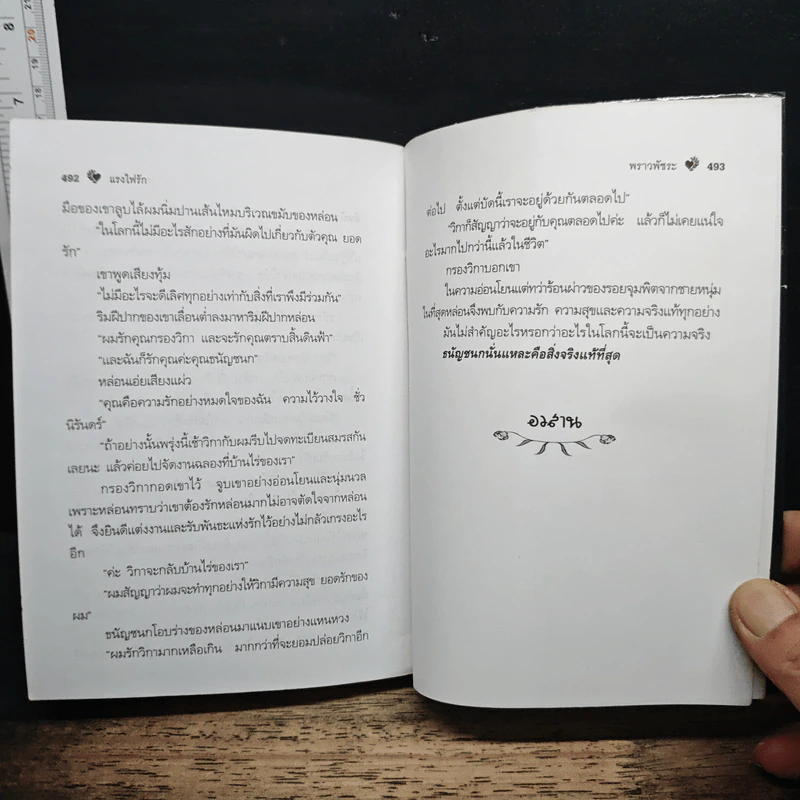 8
7
20
19
18
492 แรงไฟรัก
มือของเขาลูบไล้ผมนิ่มปานเส้นไหมบริเวณขมับของหล่อน
"ในโลกนี้ไม่มีอะไรสักอย่างที่มันผิดไปเกี่ยวกับตัวคุณ ยอด
รัก"
เขาพูดเสียงทุ้ม
"ไม่มีอะไรจะดีเลิศทุกอย่างเท่ากับสิ่งที่เราพึงมีร่วมกัน"
ริมฝีปากของเขาเลื่อนต่ำลงมาหาริมฝีปากหล่อน
"ผมรักคุณกรองวิกา และจะรักคุณตราบสิ้นดินฟ้า"
"และฉันก็รักคุณค่ะคุณธนัญชนก"
หล่อนเอ่ยเสียงแผ่ว
"คุณคือความรักอย่างหมดใจของฉัน ความไว้วางใจ ชั่ว
นิรันดร์"
"ถ้าอย่างนั้นพรุ่งนี้เช้าวิกากับผมรีบไปจดทะเบียนสมรสกัน
เลยนะ แล้วค่อยไปจัดงานฉลองที่บ้านไร่ของเรา"
กรองวิกากอดเขาไว้ จูบเขาอย่างอ่อนโยนและนุ่มนวล
เพราะหล่อนทราบว่าเขาต้องรักหล่อนมากไม่อาจตัดใจจากหล่อน
ได้ จึงยินดีแต่งงานและรับพันธะแห่งรักไว้อย่างไม่กลัวเกรงอะไร
อีก
"ค่ะ วิกาจะกลับบ้านไร่ของเรา"
"ผมสัญญาว่าผมจะทำทุกอย่างให้วิกามีความสุข ยอดรักของ
ผม"
ธนัญชนกโอบร่างของหล่อนมาแนบเขาอย่างแหนหวง
"ผมรักวิกามากเหลือเกิน มากกว่าที่จะยอมปล่อยวิกาอีก
พราวพัชระ 493
ต่อไป ตั้งแต่บัดนี้เราจะอยู่ด้วยกันตลอดไป"
"วิกาก็สัญญาว่าจะอยู่กับคุณตลอดไปค่ะ แล้วก็ไม่เคยแน่ใจ
อะไรมากไปกว่านี้แล้วในชีวิต"
กรองวิกาบอกเขา
ในความอ่อนโยนแต่ทว่าร้อนผ่าวของรอยจุมพิตจากชายหนุ่ม
ในที่สุดหล่อนจึงพบกับความรัก ความสุขและความจริงแท้ทุกอย่าง
มันไม่สำคัญอะไรหรอกว่าอะไรในโลกนี้จะเป็นความจริง
ธนัญชนกนั่นแหละคือสิ่งจริงแท้ที่สุด
อวสาน